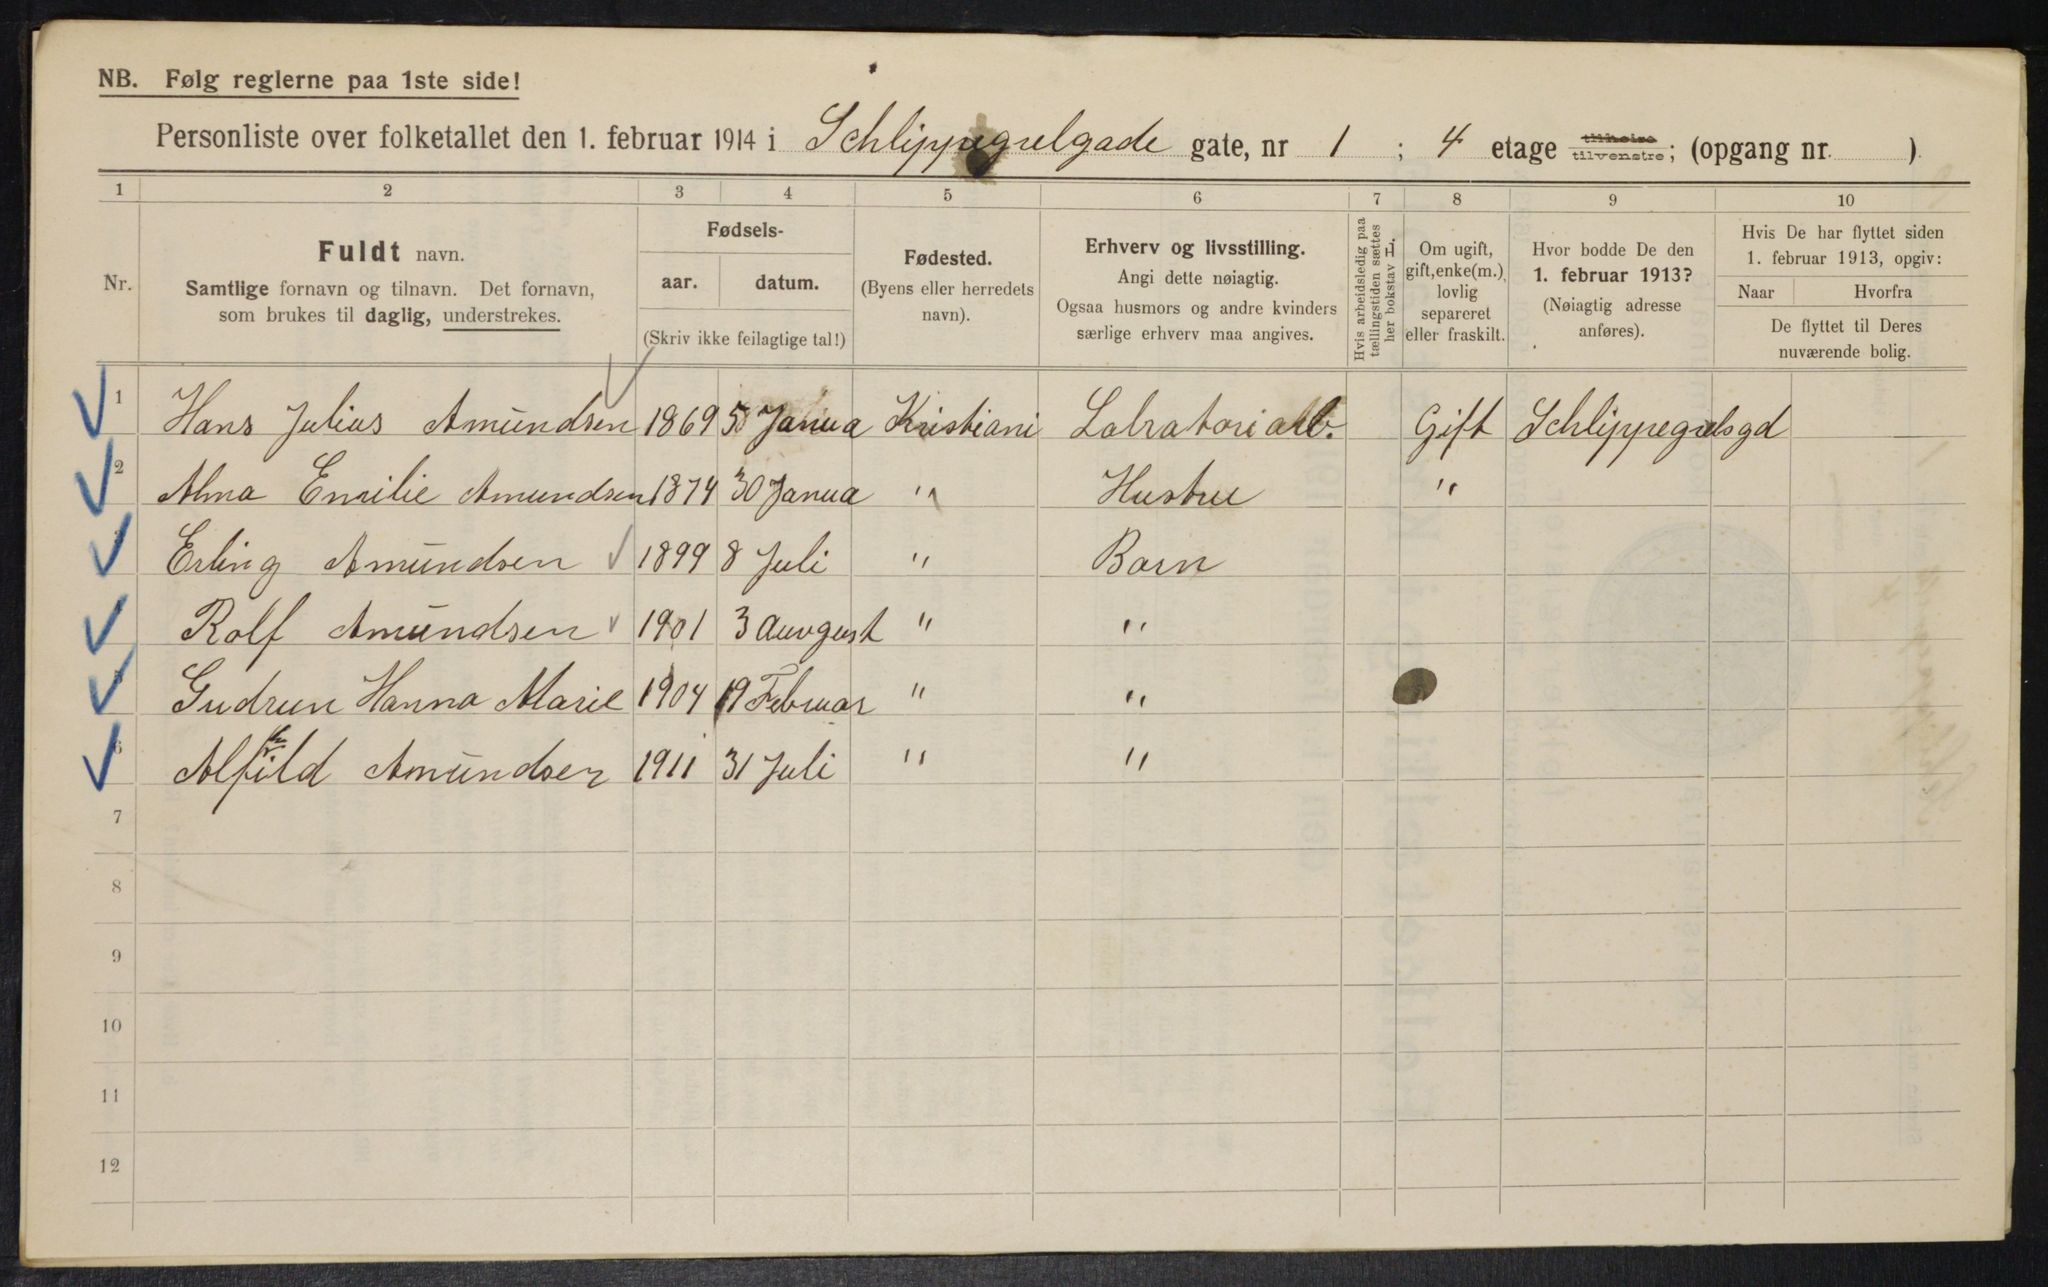 NB. Følg reglerne paa 1ste side!
Personliste over folketallet den 1. februar 1914 i Schlippegrelgade gate, nr 1 ; 4 etage tilhøire tilvenstre; (opgang nr. )
1 2 3 4 5 6 7 8 9 10
Nr.
Fuldt navn.
Samtlige fornavn og tilnavn. Det fornavn,
som brukes til daglig, understrekes.
Fødsels-
aar. datum.
(Skriv ikke feilagtige tal!)
Fødested.
(Byens eller herredets
navn).
Erhverv og livsstilling.
Angi dette nøiagtig.
Ogsaa husmors og andre kvinders
særlige erhverv maa angives.
Hvis arbeidsledig paa
tællingstiden sættes
her bokstav L.
Om ugift,
gift, enke(m.),
lovlig
separeret
eller fraskilt.
Hvor bodde De den
1. februar 1913?
(Nøiagtig adresse
anføres).
Hvis De har flyttet siden
1. februar 1913, opgiv:
Naar Hvorfra
De flyttet til Deres
nuværende bolig.
1 Hans Julius Amundsen 1869 5 Janua Kristiani Labratoriarb. Gift Schlippegrelsgd
2 Alma Emilie Amundsen 1874 30 Janua " Hustru "
Erling Amundsen 1899 8 Juli " Barn
Rolf Amundsen 1901 3 Auvgust " "
Gudrun Hanna Marie 1904 19 Februar " "
6 Alfild Amundsen 1911 31 Juli " "
7
8
9
10
11
12